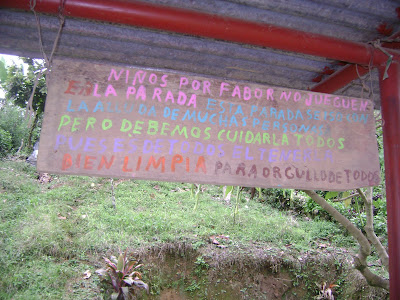 NIÑOS POR FABOR NO JUEGUEN
EN LA PARADA ESTA PARADA SE HIZO CON
LA AYUDA DE MUCHAS PERSONAS
PERO DEBEMOS CUIDARLA TODOS
PUES ES DE TODOS
BIEN LIMPIA PARA ORGULLO DE TODOS